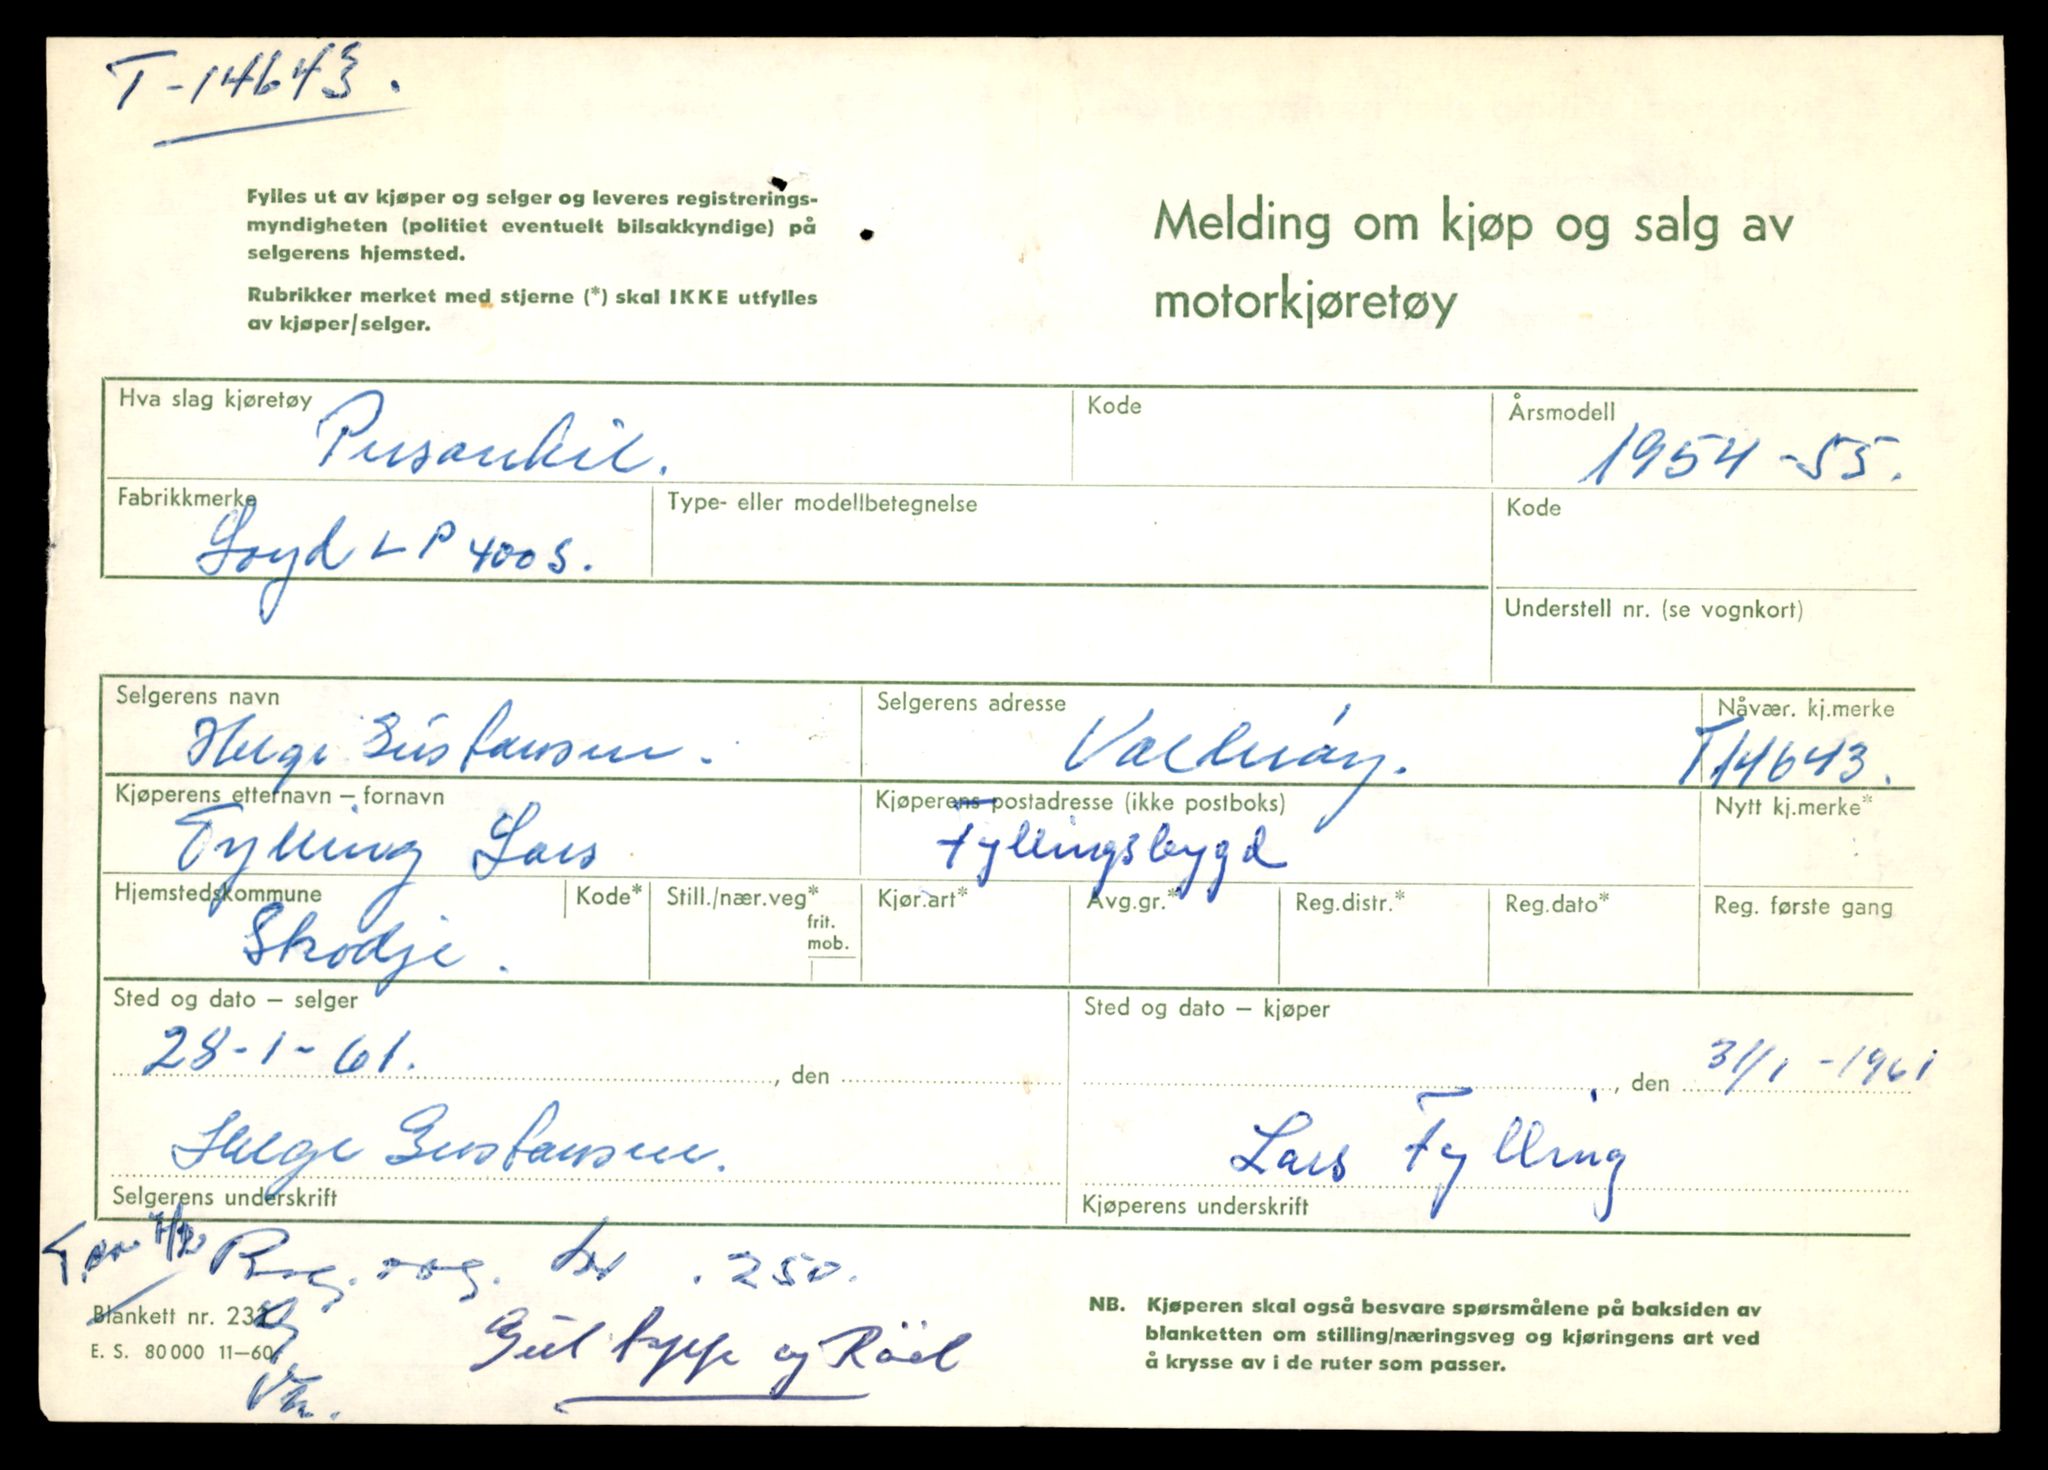 T-14643.
Fylles ut av kjøper og selger og leveres registrerings-
myndigheten (politiet eventuelt bilsakkyndige) på
selgerens hjemsted.
Rubrikker merket med stjerne (*) skal IKKE utfylles
av kjøper/selger.
Melding om kjøp og salg av
motorkjøretøy
Hva slag kjøretøy
Kode
Årsmodell
1954-55.
Fabrikkmerke
Type- eller modellbetegnelse
Kode
Loyd LP 400S.
Understell nr. (se vognkort)
Selgerens navn
Selgerens adresse
Nåvær. kj.merke
Helge Gustavsen.
Valderøy.
T14643.
Kjøperens etternavn – fornavn
Kjøperens postadresse (ikke postboks)
Nytt kj.merke*
Fylling Lars
Fyllingsbygd
Hjemstedskommune
Kode*
Still./nær.veg*
frit.
mob.
Kjør.art*
Avg.gr.*
Reg.distr.*
Reg.dato*
Reg. første gang
Skodje.
Sted og dato – selger
Sted og dato – kjøper
28-1-61.
, den
, den 31/1-1961
Helge Gustavsen.
Lars Fylling
Selgerens underskrift
Kjøperens underskrift
Reg. og. 250.
Blankett nr. 232
E. S. 80 000 11–60
Gul og Röd
NB. Kjøperen skal også besvare spørsmålene på baksiden av
blanketten om stilling/næringsveg og kjøringens art ved
å krysse av i de ruter som passer.